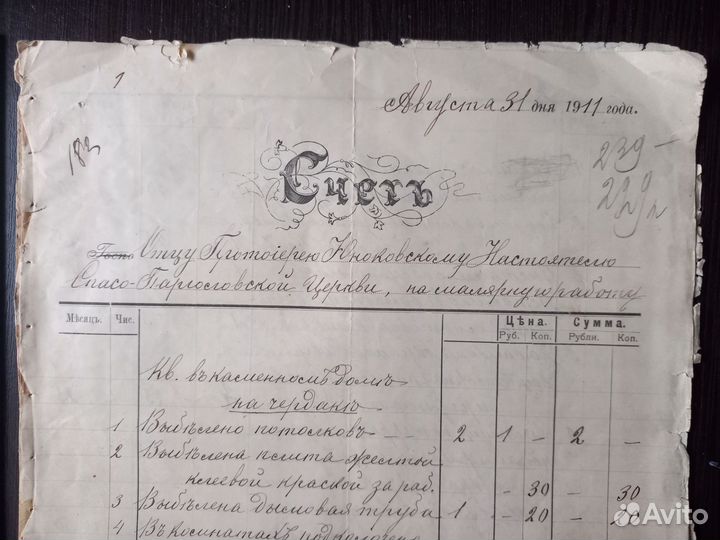 1
Августа 31 дня 1911 года.
183
239 -
229
Счетъ
Госпо Отцу Протоіерею Юноковскому Настоятелю
Спасо-Парголовской Церкви, на малярную работу
Мѣсяцъ. Чис. Цѣна. Сумма.
Руб. Коп. Рубли. Коп.
Кв. въ каменномъ домѣ
на чердакѣ
1 Выбѣлено потолковъ - - 2 1 - 2 -
2 Выбѣлена плита желтой
клеевой краской за раб. - 30 30
3 Выбѣлена дымовая труба 1 - 20 - 20
4 Въ комнатахъ
Avito